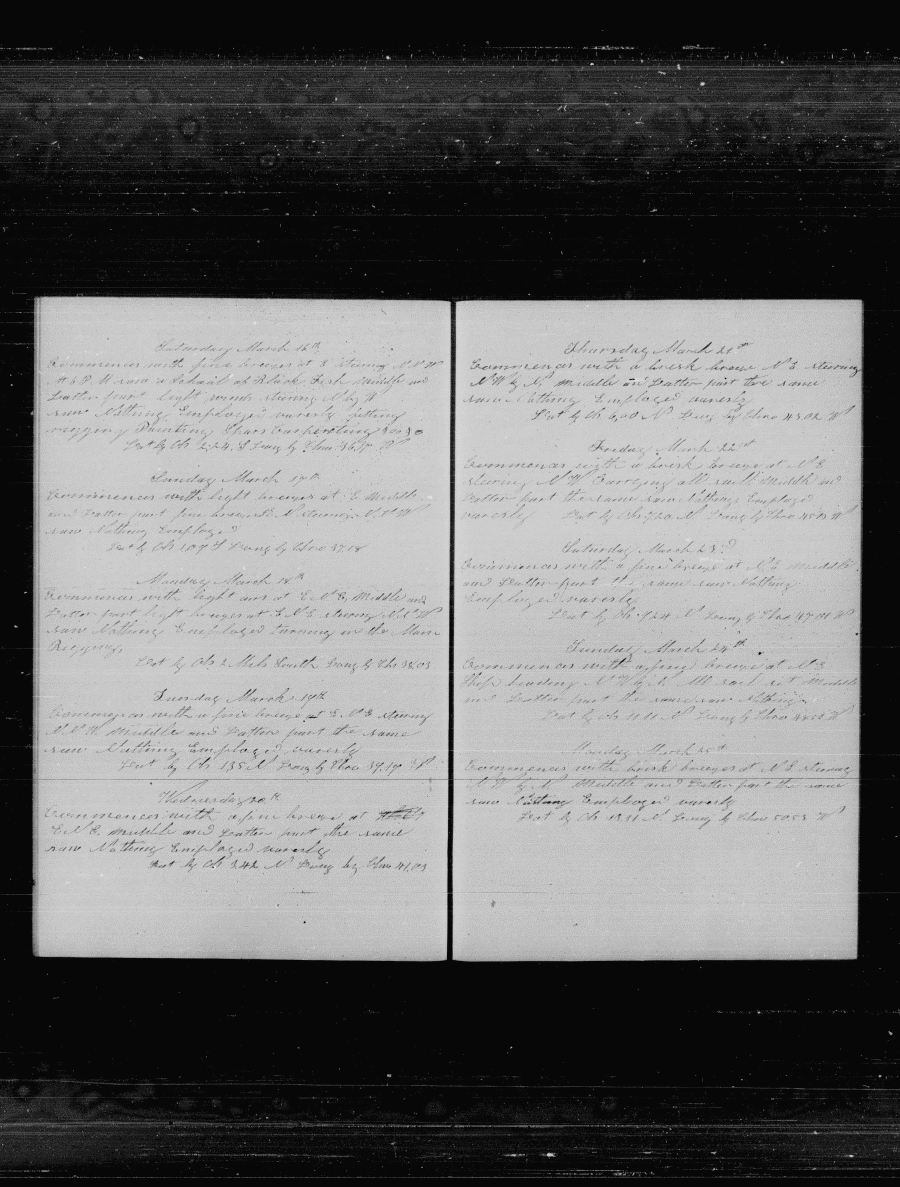 Saturday March 16th
Commences with fine breezes at E steering N.N.W
At 6 P.M saw a School of Black Fish Middle and
Latter part light winds steering N by W
saw Nothing Employed variously fitting
rigging Painting Spars Carpenting
Lat by Obs 2.24 S Long by Chro 36.17 W
Sunday March 17th
Commences with light breezes at E Middle
and Latter part fine breezes steering N.N.W
saw Nothing Employed
Lat by Obs 1.07 S Long by Chro 37.18
Monday March 18th
Commences with light airs at E.N.E, Middle and
Latter part light breezes at E.N.E steering N.N.W
saw Nothing Employed turning in the Main
Rigging,
Lat by Obs 2 Mils South Long by Chr 38.03
Tuesday March 19th
Commences with a fine breeze at E.N.E steering
N.N.W Middle and Latter part the same
saw Nothing Employed variously
Lat by Obs 1.35 N Long by Chro 39.17 W
Wednesday 20th
Commences with a fine breeze at
E.N.E. Middle and Latter part the same
saw Nothing Employed variously
Lat by Obs 3.42 N Long by Chro 41.03
Thursday March 21st
Commences with a brisk breeze N.E. steering
N.W by N. Middle and Latter part the same
saw Nothing Employed variously
Lat by Obs 6.00 N Long by Chro 43.02 W
Friday March 22nd
Commences with a brisk breeze at N.E
steering N.W Carrying all sail Middle and
Latter part the same saw Nothing Employed
variously Lat by Obs 7.20 N Long by Chro W
Saturday March 23d
Commences with a fine breeze at N.E Middle
and Latter part the same saw Nothing
Employed variously
Lat by Obs 9.24 N Long by Chro 47.01 W
Sunday March 24th
Commences with a fine breeze at N.E
Ship heading N.W by N. All sail set Middle
and Latter part the same saw Nothing
Lat by Obs 11.11 N Long by Chro W
Monday March 25th
Commences with brisk breezes at N.E steering
N.W by N. Middle and Latter part the same
saw Nothing Employed variously
Lat by Obs 13.11 N Long by Chro 50.53 W